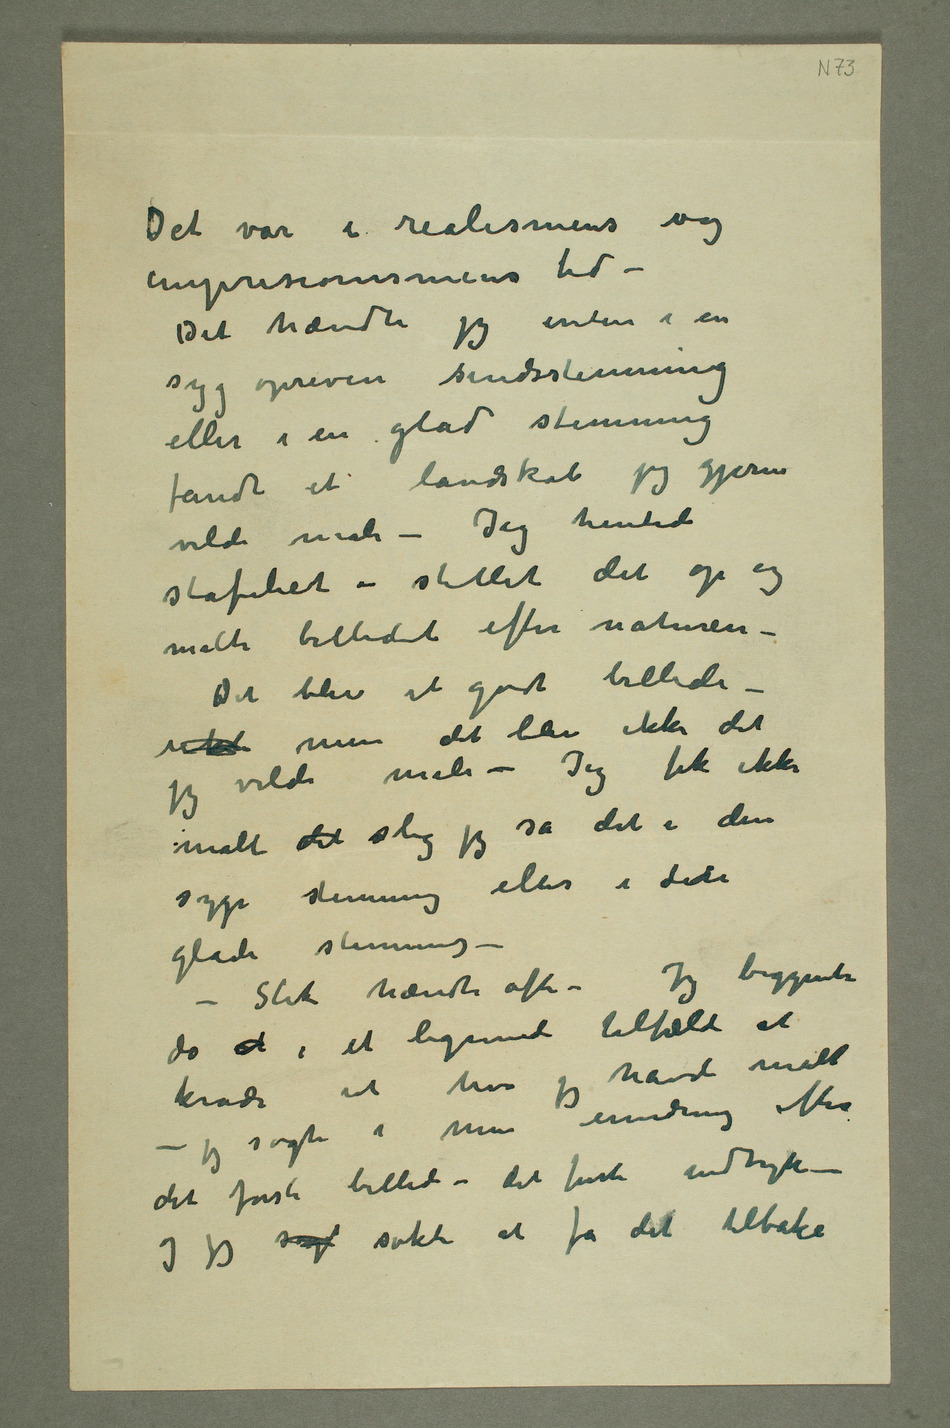 N 73
Det var i realismens og
impresionismens tid –
Det hændte jeg enten i en
syg opreven sindsstemning
eller i en glad stemning
fandt et landskab jeg gjerne
vilde male – Jeg hentede
stafeliet – stillet det op og
malte billedet efter naturen –
Det blev et godt billede –
men det blev ikke det
jeg vilde male – Jeg fik ikke
malt det slig jeg så det i den
syge stemning eller i den
glade stemning –
– Slik hændte ofte – Jeg begynte
da at i et lignende tilfælde at
krade ut hva jeg havde malt
– jeg søgte i min erindring efter
det første billede – det første indtryk –
og jeg søgt søkte at få det tilbake